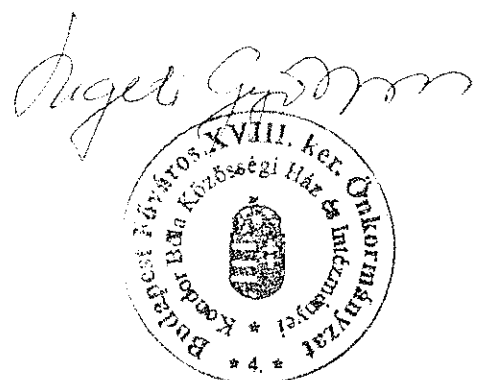 Budapest Főváros XVIII. ker. Önkormányzat
Kondor Béla Közösségi Ház és Intézményei
* 4. *